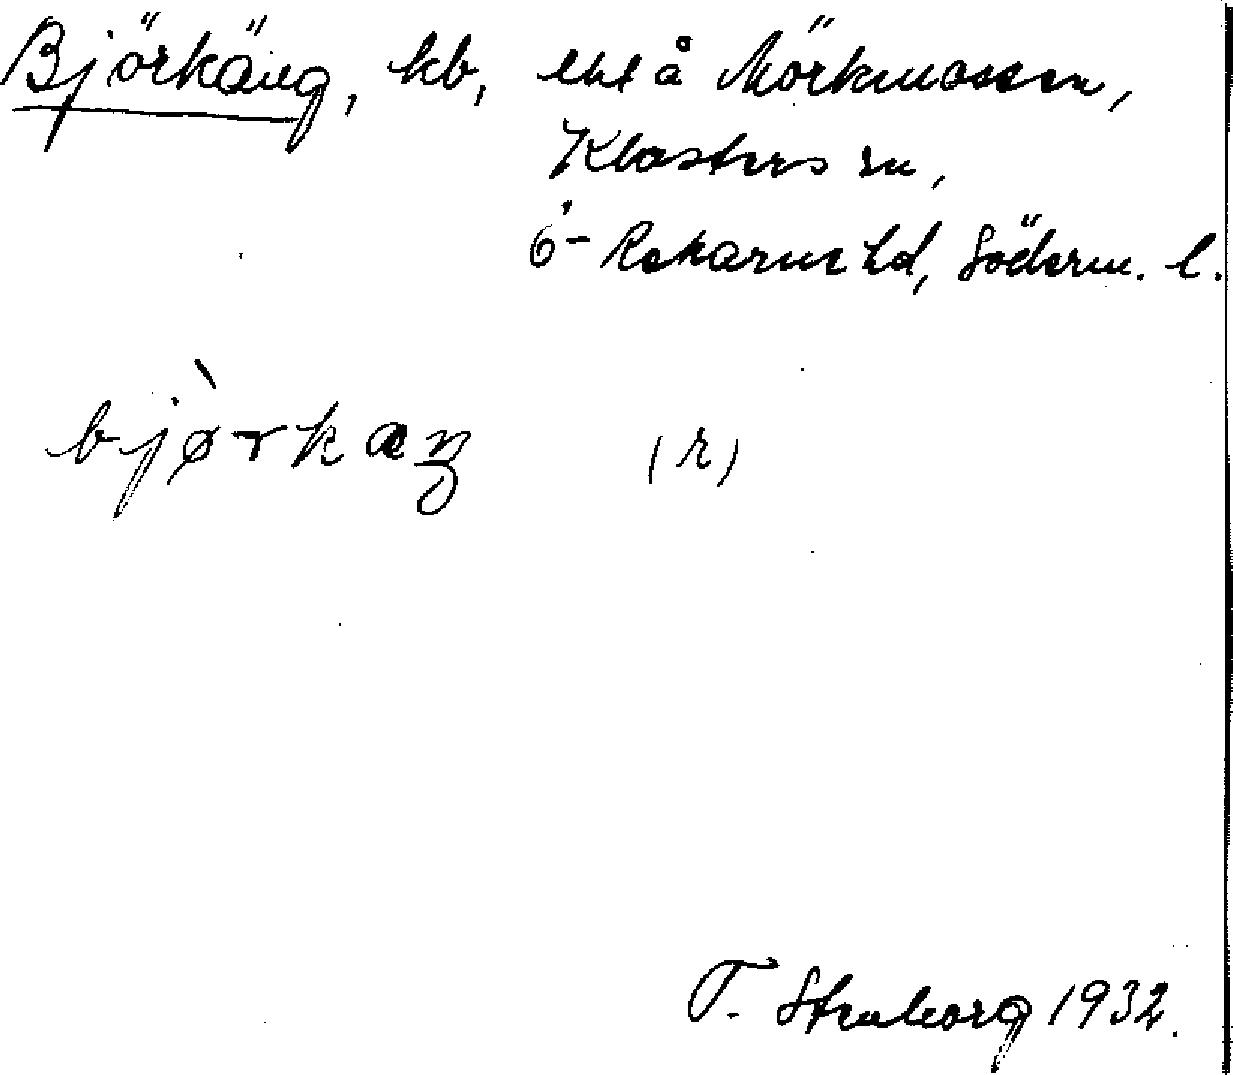 Björkäng, kb, å Mörkmossen,
Klosters sn,
Ö-Rekarne hd, Söderm. l.
bjø̀rkæŋ (r)
T. Stenborg 1932.